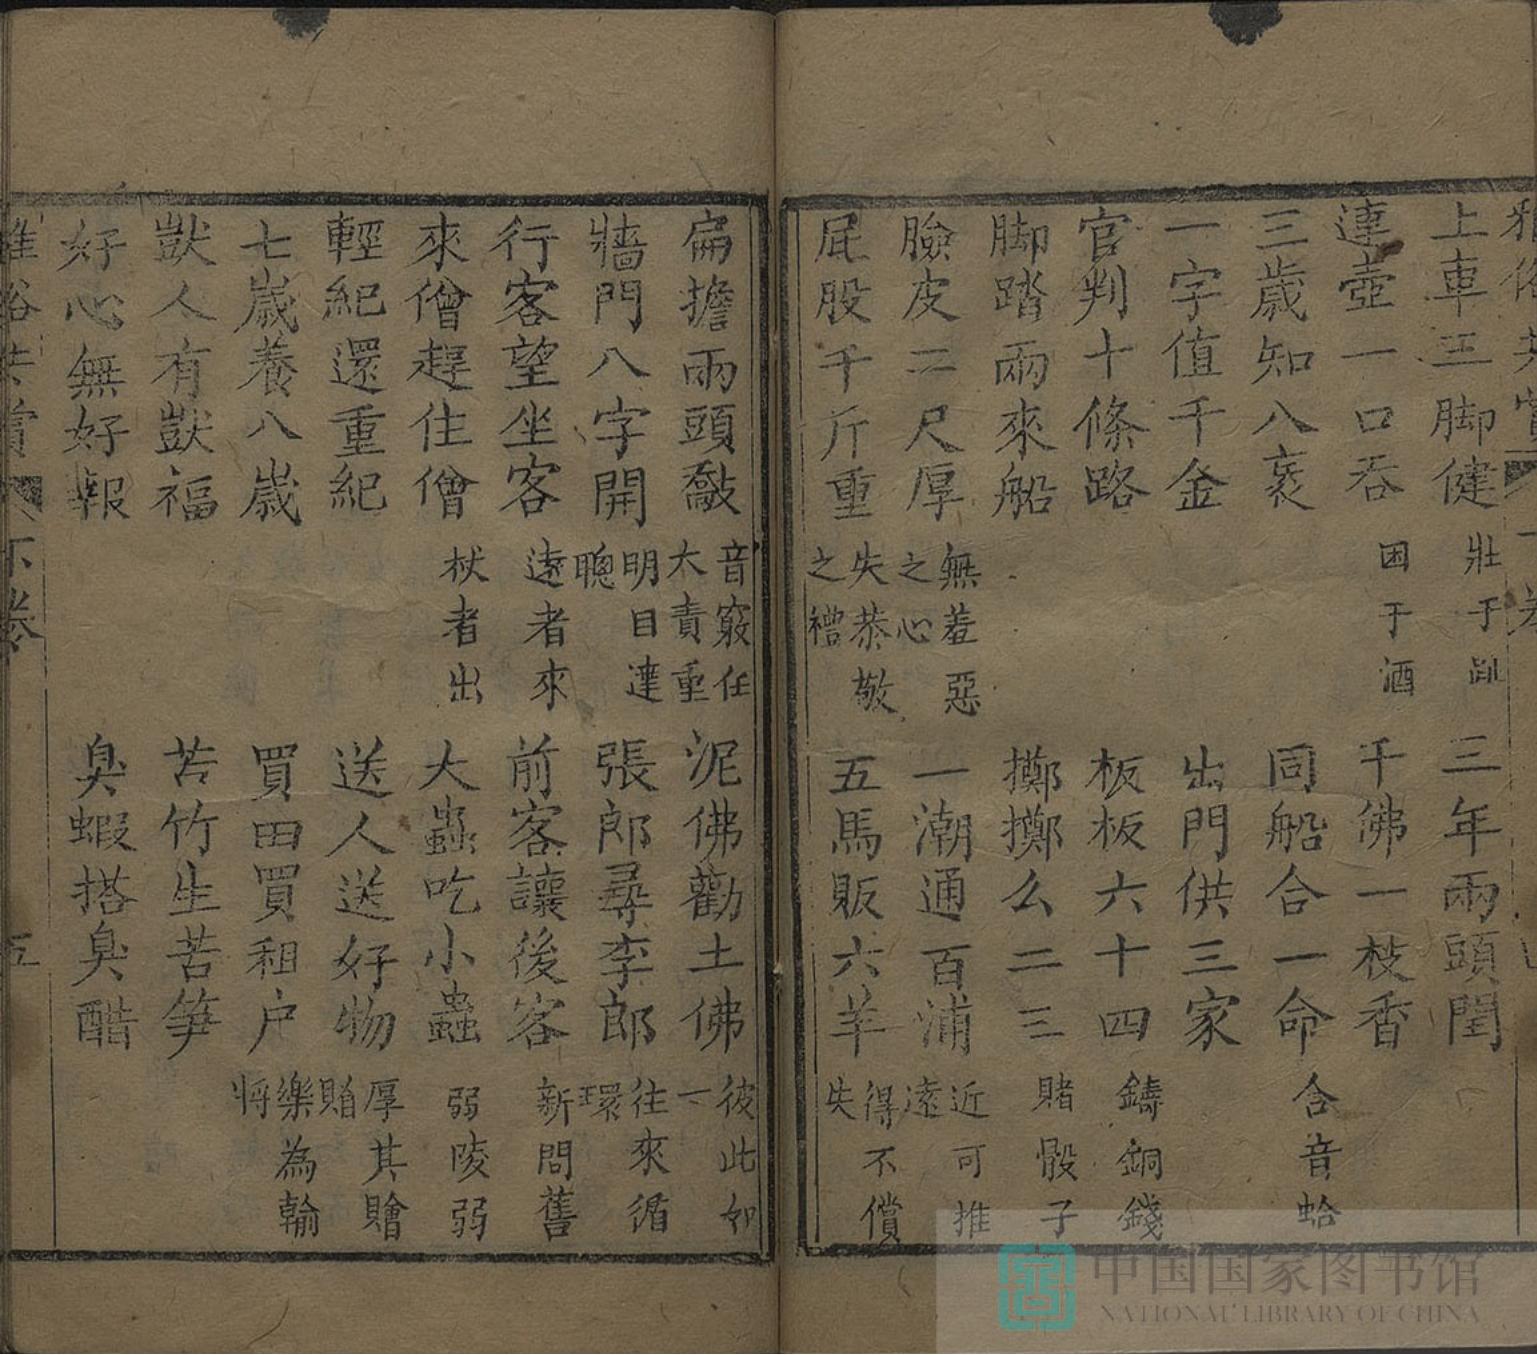 上車三脚健 壯于趾 三年兩頭閏
連壺一口吞 困于酒 千佛一枝香
三歲知八衮 同船合一命 合音蛤
一字值千金 出門供三家
官判十條路 板板六十四 鑄銅錢
脚踏兩來船 擲擲么二三 賭骰子
臉皮二尺厚 無羞惡之心 一潮通百浦 近可推遠
屁股千斤重 失恭敬之禮 五馬販六羊 得不償失
扁擔兩頭敲 音竅任大責重 泥佛勸土佛 彼此如一
牆門八字開 明目達聰 張郎尋李郎 往來循環
行客望坐客 遠者來 前客讓後客 新問舊
來僧趕住僧 杖者出 大蟲吃小蟲 弱陵弱
輕紀還重紀 送人送好物 厚其贈賵
七歲養八歲 買田買租户 樂為輸將
獃人有獃福 苦竹生苦筍
好心無好報 臭蝦搭臭醋
雅俗共賞 下卷 五
中国国家图书馆
NATIONAL LIBRARY OF CHINA